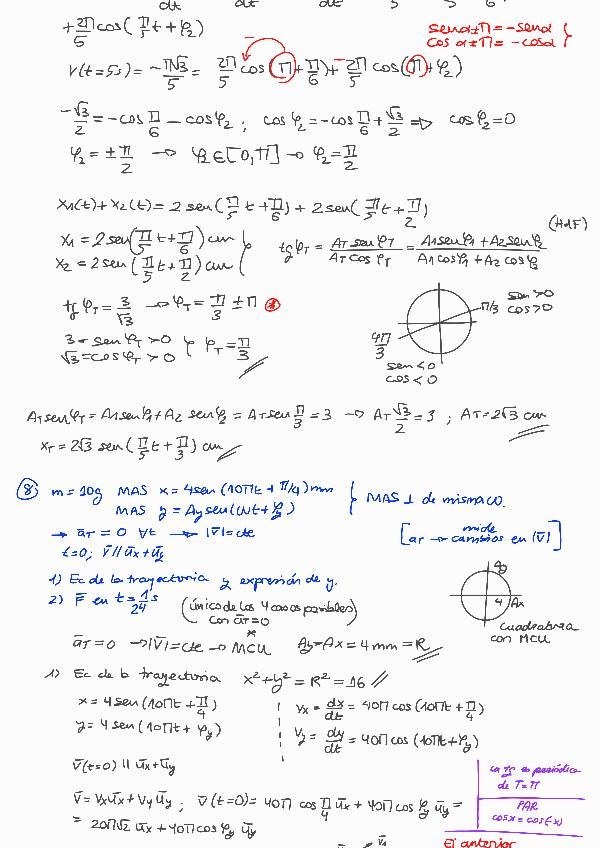 dt dt dt 5 5 6
+ 2π/6 cos(π/5 t + φ2)
senα±π = -senα
cosα±π = -cosα
V(t=5s) = -π√3/5 = 2π/5 cos(π + π/6) + 2π/5 cos(π + φ2)
-√3/2 = -cos π/6 - cos φ2 ; cos φ2 = -cos π/6 + √3/2 ⇒ cos φ2 = 0
φ2 = ± π/2 → φ2 ∈ [0,π] → φ2 = π/2
x1(t) + x2(t) = 2 sen(π/5 t + π/6) + 2 sen(π/5 t + π/2)
x1 = 2 sen(π/5 t + π/6) cm
x2 = 2 sen(π/5 t + π/2) cm
tg φT = AT sen φT / AT cos φT = A1 sen φ1 + A2 sen φ2 / A1 cos φ1 + A2 cos φ2
tg φT = 3/√3 → φT = π/3 ± π
3 = sen φT > 0
√3 = cos φT > 0
φT = π/3
π/3 sen > 0
cos > 0
4π/3
sen < 0
cos < 0
AT sen φT = A1 sen φ1 + A2 sen φ2 = AT sen π/3 = 3 → AT √3/2 = 3 ; AT = 2√3 cm
xT = 2√3 sen(π/5 t + π/3) cm
8 m = 10g MAS x = 4 sen(10πt + π/4) mm
MAS y = Ay sen(ωt + φy)
MAS ⊥ de misma ω.
→ aT = 0 ∀t → |V| = cte
t=0; V // ux + uy
[ aT → mide cambios en |V| ]
1) Ec de la trayectoria y expresión de y.
2) F en t = 1/24 s (único de los 4 casos posibles)
con aT = 0
Ay
4 Ax
cuadraba
con MCU
aT = 0 → |V| = cte → MCU Ay = Ax = 4 mm = R
1) Ec de la trayectoria x² + y² = R² = 16
x = 4 sen(10πt + π/4)
y = 4 sen(10πt + φy)
Vx = dx/dt = 40π cos(10πt + π/4)
Vy = dy/dt = 40π cos(10πt + φy)
V(t=0) // ux + uy
V = Vx ux + Vy uy ; V(t=0) = 40π cos π/4 ux + 40π cos φy uy =
= 20π√2 ux + 40π cos φy uy
la tg es periódica
de T = π
PAR
cos x = cos(-x)
El anterior